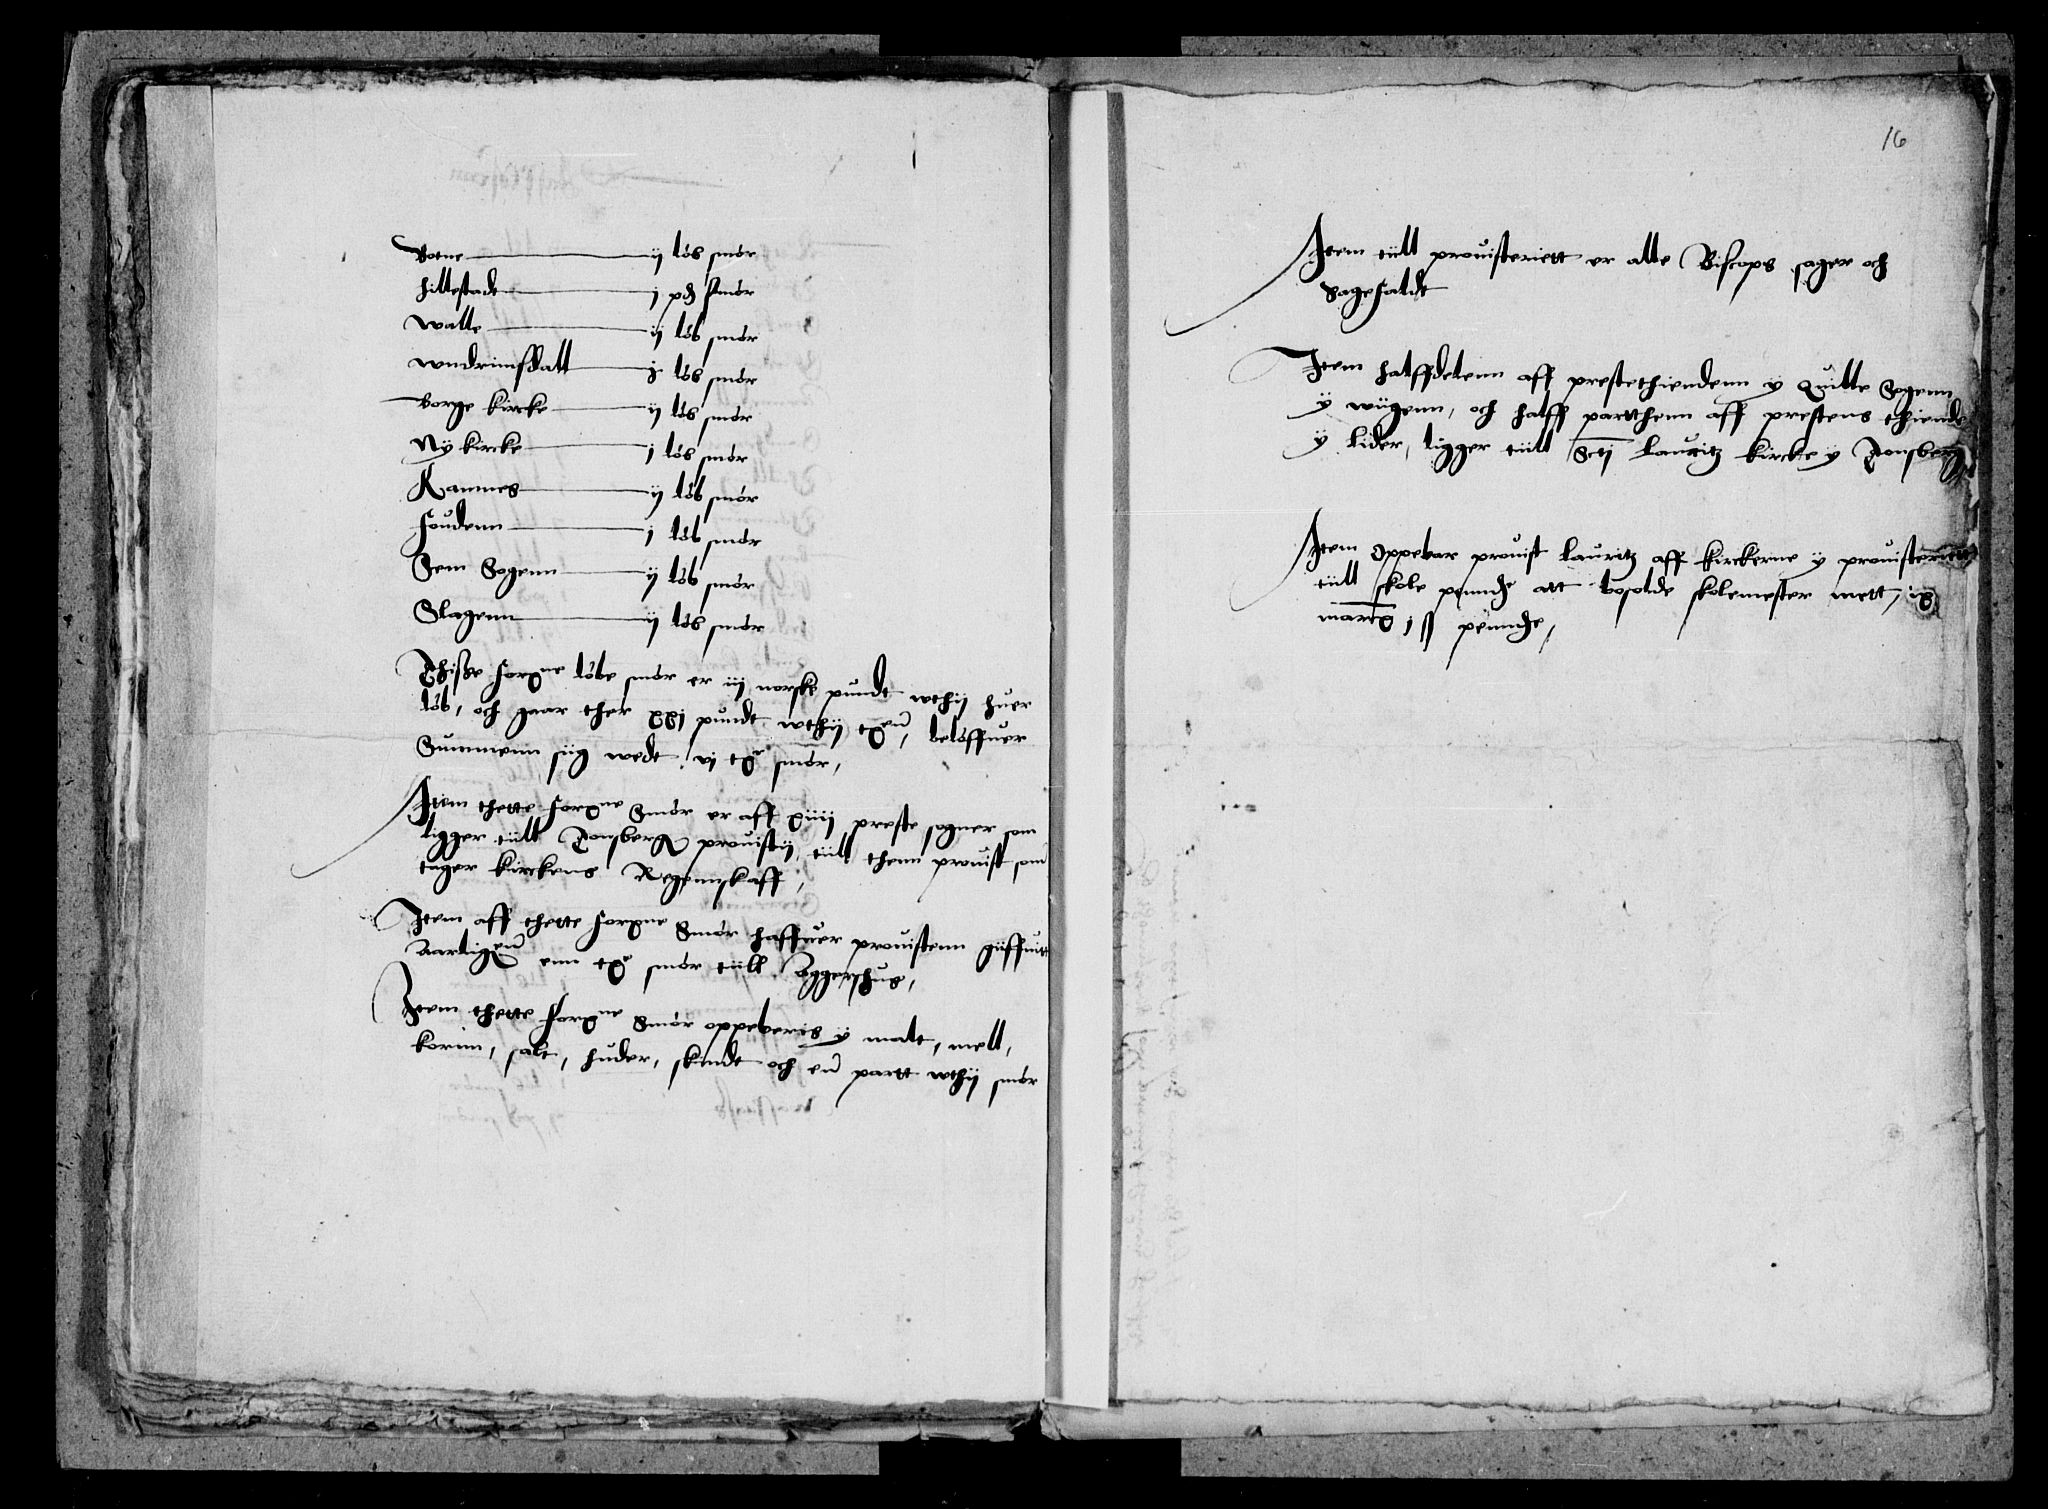 Botne ij løb smør
Hillestadt j pd smør
walle ij løb smør
wndrimsdall j løb smør
Borge kircke ij løb smør
Ny kircke j løb smør
Ramnes ij løb smør
Foudenn j løb smør
Sem Sogenn ij løb smør
Slagenn ij løb smør
Thisse forne løbe smør er iij norske pundt wthij huer
løb, och gaar ther xxj pundt wthij tn, beløffuer
Summenn siig wedt vj tr smør,
Item thette forne Smør er aff xiiij preste sogner som
ligger tiill Tonsberg prouistij tiill thenn prouist som
tager kirckens Regennskaff,
Item aff thette forne Smør haffuer prouistenn giiffuit
Aarligen enn tr smør tiill Aggershus,
Item thette forne Smør oppeberis y malt, mell,
kornn, salt, huder, skindt och en partt wthij smør
16
Item tiill prouisteriett er alle Biscops sager och
Sagefaldt
Item halffdelenn aff prestethiendenn y Quille Sogenn
y wiigenn, och halff partthenn aff prestens thiende
y lider, ligger tiill Scti lauritz kircke y Tonsberg
Item Oppebar prouist lauritz aff kirckerne y prouisteriett
tiill skole penninge att besolde skolemester mett, ix
marc j ß penninge,